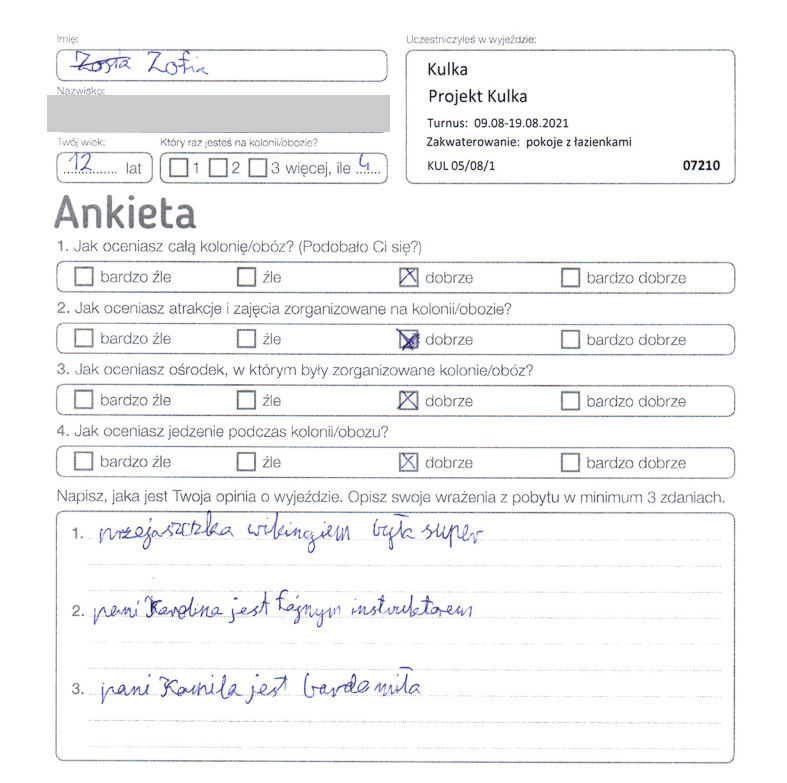 Imię:
Zosia Zofia
Uczestniczyłeś w wyjeździe:
Kulka
Projekt Kulka
Turnus: 09.08-19.08.2021
Zakwaterowanie: pokoje z łazienkami
KUL 05/08/1 07210
Nazwisko:
Twój wiek:
12 lat
Który raz jesteś na kolonii/obozie?
1 2 3 więcej, ile 4
Ankieta
1. Jak oceniasz całą kolonię/obóz? (Podobało Ci się?)
bardzo źle źle dobrze bardzo dobrze
2. Jak oceniasz atrakcje i zajęcia zorganizowane na kolonii/obozie?
bardzo źle źle dobrze bardzo dobrze
3. Jak oceniasz ośrodek, w którym były zorganizowane kolonie/obóz?
bardzo źle źle dobrze bardzo dobrze
4. Jak oceniasz jedzenie podczas kolonii/obozu?
bardzo źle źle dobrze bardzo dobrze
Napisz, jaka jest Twoja opinia o wyjeździe. Opisz swoje wrażenia z pobytu w minimum 3 zdaniach.
1. przejaszczka wikingiem była super
2. pani Karolina jest fajnym instruktorem
3. pani Kamila jest bardo miła